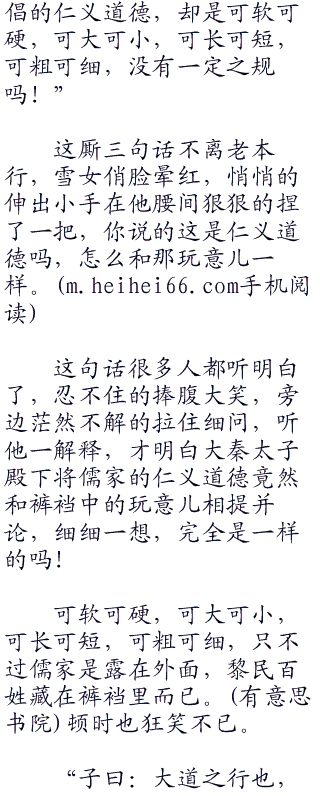 倡的仁义道德，却是可软可
硬，可大可小，可长可短，
可粗可细，没有一定之规
吗！”
这厮三句话不离老本
行，雪女俏脸晕红，悄悄的
伸出小手在他腰间狠狠的捏
了一把，你说的这是仁义道
德吗，怎么和那玩意儿一
样。(m.heihei66.com手机阅
读)
这句话很多人都听明白
了，忍不住的捧腹大笑，旁
边茫然不解的拉住细问，听
他一解释，才明白大秦太子
殿下将儒家的仁义道德竟然
和裤裆中的玩意儿相提并
论，细细一想，完全是一样
的吗！
可软可硬，可大可小，
可长可短，可粗可细，只不
过儒家是露在外面，黎民百
姓藏在裤裆里而已。(有意思
书院)顿时也狂笑不已。
“子曰：大道之行也，